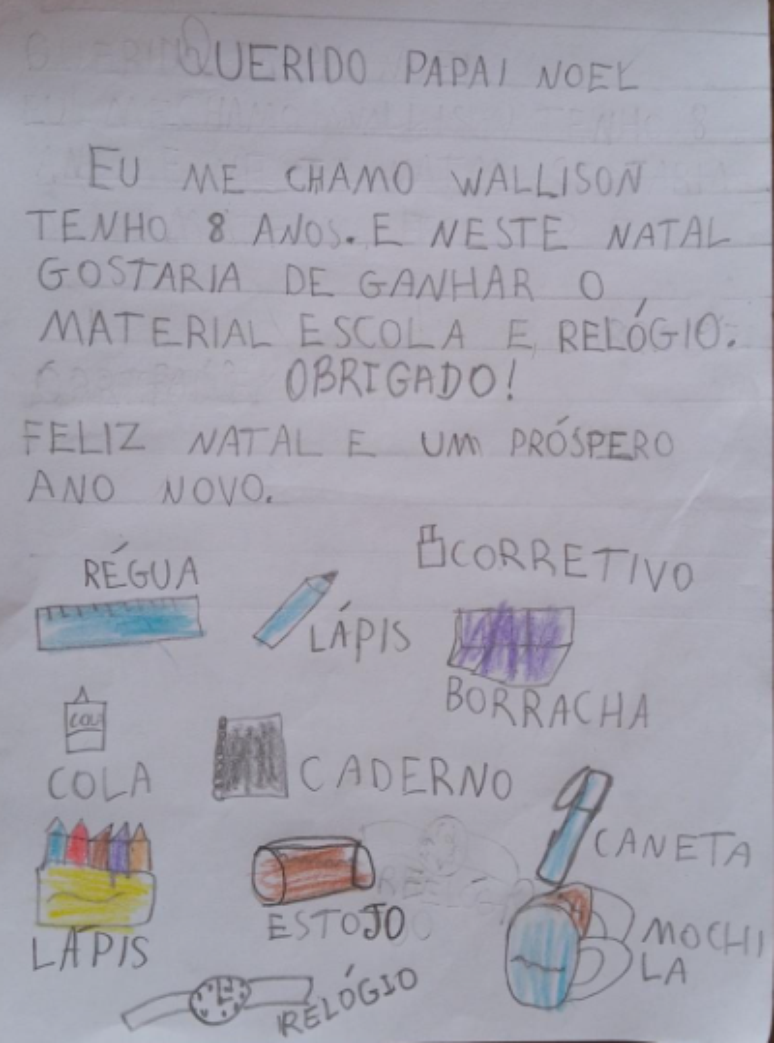 QUERIDO PAPAI NOEL
EU ME CHAMO WALLISON
TENHO 8 ANOS. E NESTE NATAL
GOSTARIA DE GANHAR O
MATERIAL ESCOLA E RELÓGIO.
OBRIGADO!
FELIZ NATAL E UM PRÓSPERO
ANO NOVO.
CORRETIVO
RÉGUA
LÁPIS
BORRACHA
COLA
COLA
CADERNO
CANETA
ESTOJO
LÁPIS
MOCHI
LA
RELÓGIO